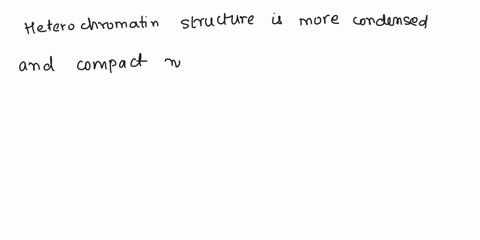 Heterochromatin structure is more condensed
and compact